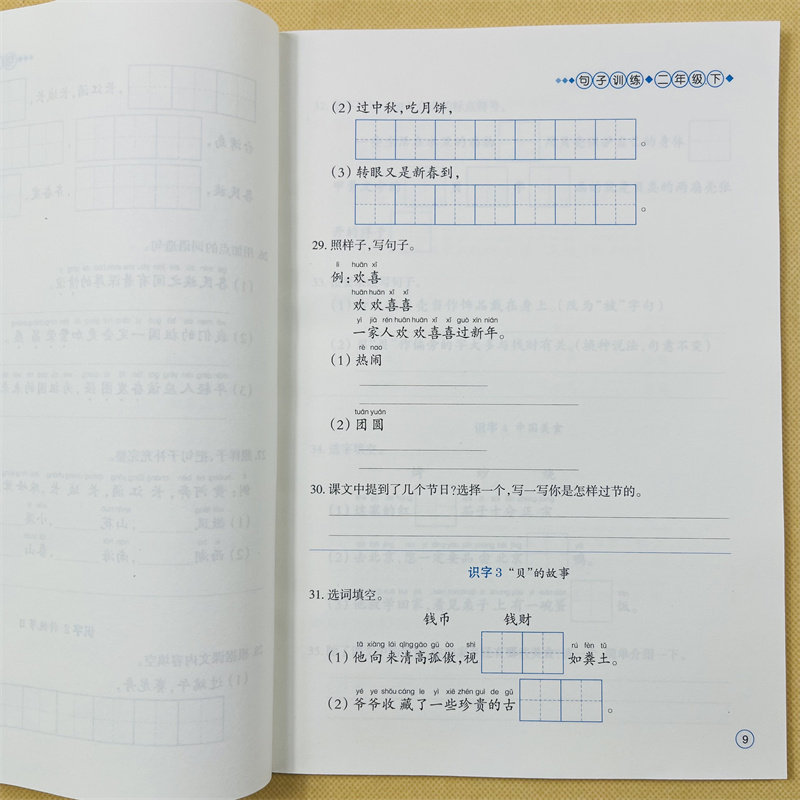 句子训练 二年级下
(2) 过中秋,吃月饼,
。
(3) 转眼又是新春到,
。
29. 照样子,写句子。
lì huān xǐ
例:欢喜
huān huān xǐ xǐ
欢欢喜喜
yì jiā rén huān huān xǐ xǐ guò xīn nián
一家人欢欢喜喜过新年。
rè nao
(1) 热闹
tuán yuán
(2) 团圆
30. 课文中提到了几个节日?选择一个,写一写你是怎样过节的。
识字 3 “贝”的故事
31. 选词填空。
钱币 钱财
tā xiàng lái qīng gāo gū ào shì rú fèn tǔ
(1) 他向来清高孤傲,视 如粪土。
yé ye shōu cáng le yì xiē zhēn guì de gǔ
(2) 爷爷收藏了一些珍贵的古 。
9